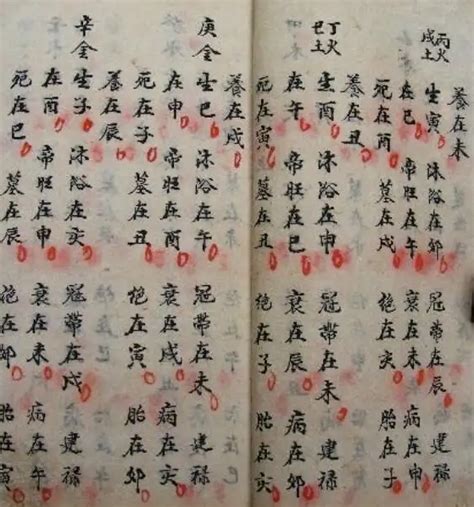 養在未
丙火
戊土
生寅 沐浴在卯 冠帶在辰 建禄
在巳 帝旺在午 衰在未 病在申
死在酉 墓在戌 絶在亥 胎在子
養在丑
丁火
己土
生酉 沐浴在申 冠帶在未 建禄
在午 帝旺在巳 衰在辰 病在卯
死在寅 墓在丑 絶在子 胎在亥
養在戌
庚金
生巳 沐浴在午 冠帶在未 建禄
在申 帝旺在酉 衰在戌 病在亥
死在子 墓在丑 絶在寅 胎在卯
養在辰
辛金
生子 沐浴在亥 冠帶在戌 建禄
在酉 帝旺在申 衰在未 病在午
死在巳 墓在辰 絶在卯 胎在寅